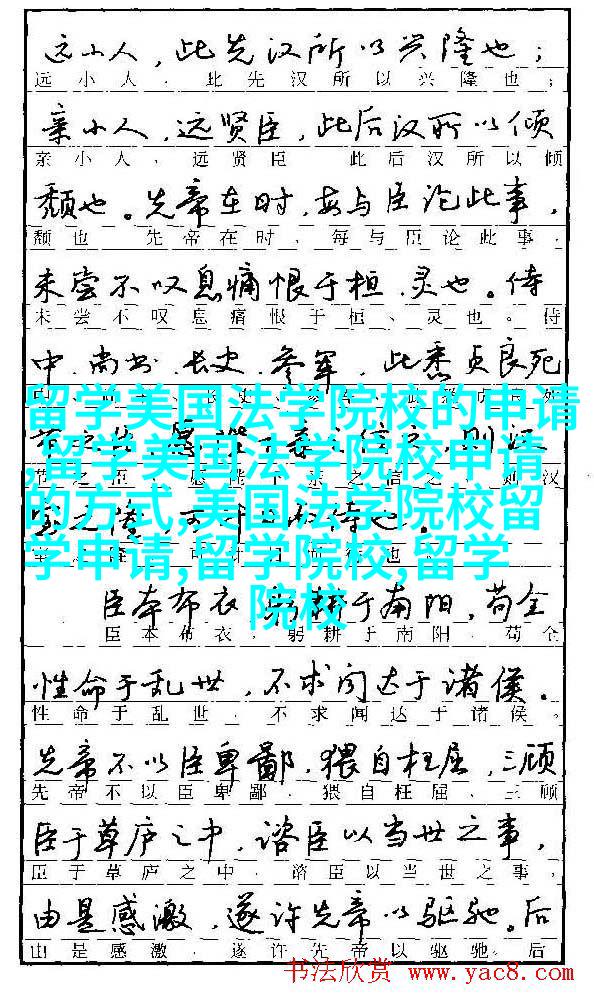 远小人，此先汉所以兴隆也；
远小人，此先汉所以兴隆也；
亲小人，远贤臣，此后汉所以倾
亲小人，远贤臣 此后汉所以倾
颓也。先帝在时，每与臣论此事，
颓也 先帝在时，每与臣论此事，
未尝不叹息痛恨于桓、灵也。侍
未尝不叹息痛恨于桓、灵也。侍
中、尚书、长史、参军，此悉贞良死
留学美国法学院校的申请
,留学美国法学院校申请
则汉
节之臣 亲之信之 则汉
的方式,美国法学院校留
待也。
学申请,留学院校,留学
院校
臣本布衣，躬耕于南阳，苟全
臣本布衣，躬耕于南阳，苟全
性命于乱世，不求闻达于诸侯。
性命于乱世，不求闻达于诸侯。
先帝不以臣卑鄙，猥自枉屈，三顾
先帝不以臣卑鄙，猥自枉屈，三顾
臣于草庐之中，谘臣以当世之事，
臣于草庐之中，谘臣以当世之事，
由是感激，遂许先帝以驱驰。后
由是感激，遂许先帝以驱驰。后
书法欣赏 www.yac8.com